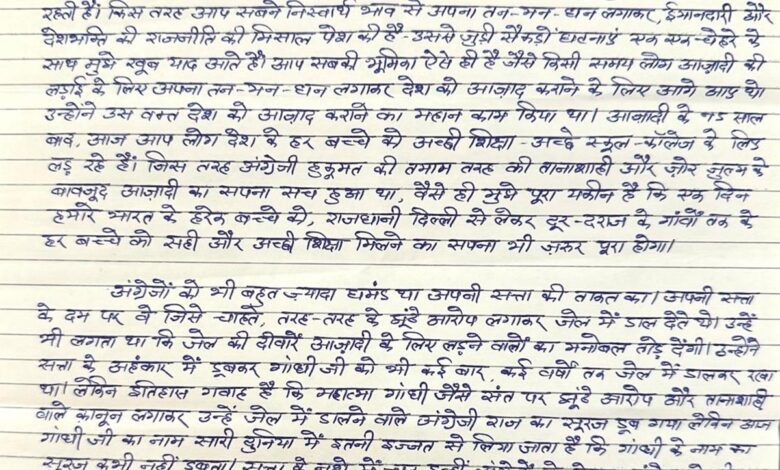 रहती हैं। किस तरह आप सबने निस्वार्थ भाव से अपना तन-मन-धन लगाकर, ईमानदारी और
देशभक्ति की राजनीति की मिसाल पेश की है - उससे जुड़ी सैकड़ों घटनाएं एक एक चेहरे के
साथ मुझे खूब याद आते हैं। आप सबकी भूमिका ऐसे ही है जैसे किसी समय लोग आज़ादी की
लड़ाई के लिए अपना तन-मन-धन लगाकर देश को आज़ाद कराने के लिए आगे आए थे।
उन्होंने उस वक्त देश को आज़ाद कराने का महान काम किया था। आज़ादी के 75 साल
बाद, आज आप लोग देश के हर बच्चे को अच्छी शिक्षा - अच्छे स्कूल-कॉलेज के लिए
लड़ रहे हैं। जिस तरह अंग्रेजी हुकूमत की तमाम तरह की तानाशाही और ज़ोर जुल्म के
बावजूद आज़ादी का सपना सच हुआ था, वैसे ही मुझे पूरा यकीन है कि एक दिन
हमारे भारत के हरेक बच्चे को, राजधानी दिल्ली से लेकर दूर-दराज के गांवों तक के
हर बच्चे को सही और अच्छी शिक्षा मिलने का सपना भी ज़रूर पूरा होगा।
अंग्रेजों को भी बहुत ज्यादा घमंड था अपनी सत्ता की ताकत का। अपनी सत्ता
के दम पर वे जिसे चाहते, तरह-तरह के झूठे आरोप लगाकर जेल में डाल देते थे। उन्हें
भी लगता था कि जेल की दीवारें आज़ादी के लिए लड़ने वालों का मनोबल तोड़ देंगी। उन्होंने
सत्ता के अहंकार में डूबकर गांधी जी को भी कई बार, कई वर्षों तक जेल में डालकर रखा
था। लेकिन इतिहास गवाह है कि महात्मा गांधी जैसे संत पर झूठे आरोप और तानाशाही
वाले कानून लगाकर उन्हें जेल में डालने वाले अंग्रेजी राज का सूरज डूब गया लेकिन आज
गांधी जी का नाम सारी दुनिया में इतनी इज्जत से लिया जाता है कि गांधी के नाम का
सूरज कभी नहीं डूबता। सत्ता के नशे में